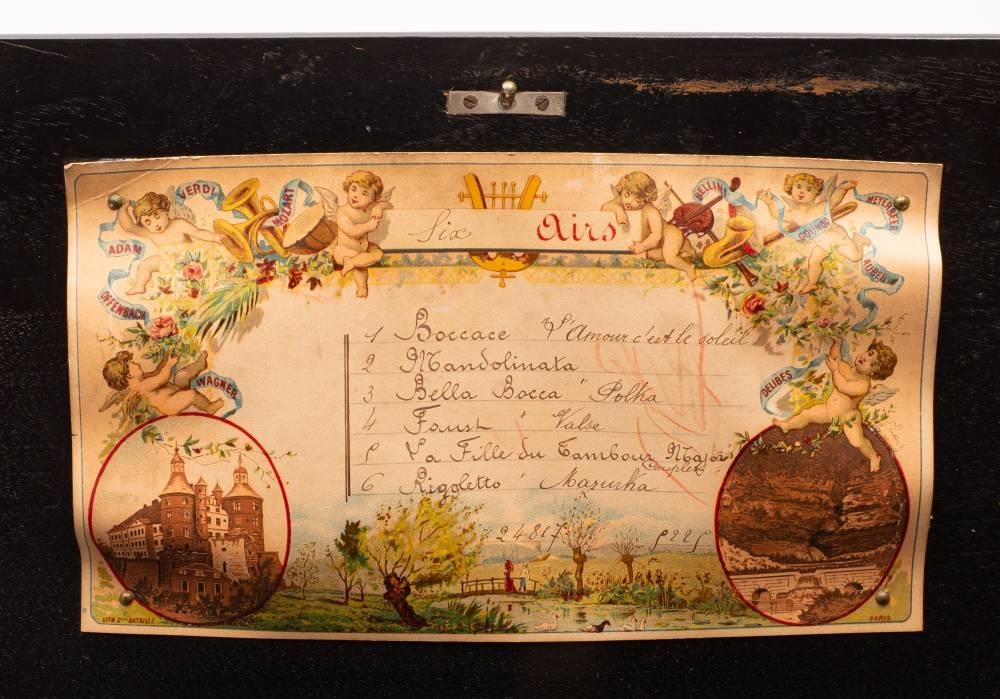 VERDI
MOZART
ADAM
OFFENBACH
WAGNER
BELLINI
GOUNOD
MEYERBEER
AUBER
DELIBES
Six Airs
1 Boccace "L'Amour c'est le soleil
2 Mandolinata
3 Bella Bocca " Polka
4 Faust " Valse
5 La Fille du Tambour Major
Couplets
6 Rigoletto " Mazurka
24817 5225
PARIS